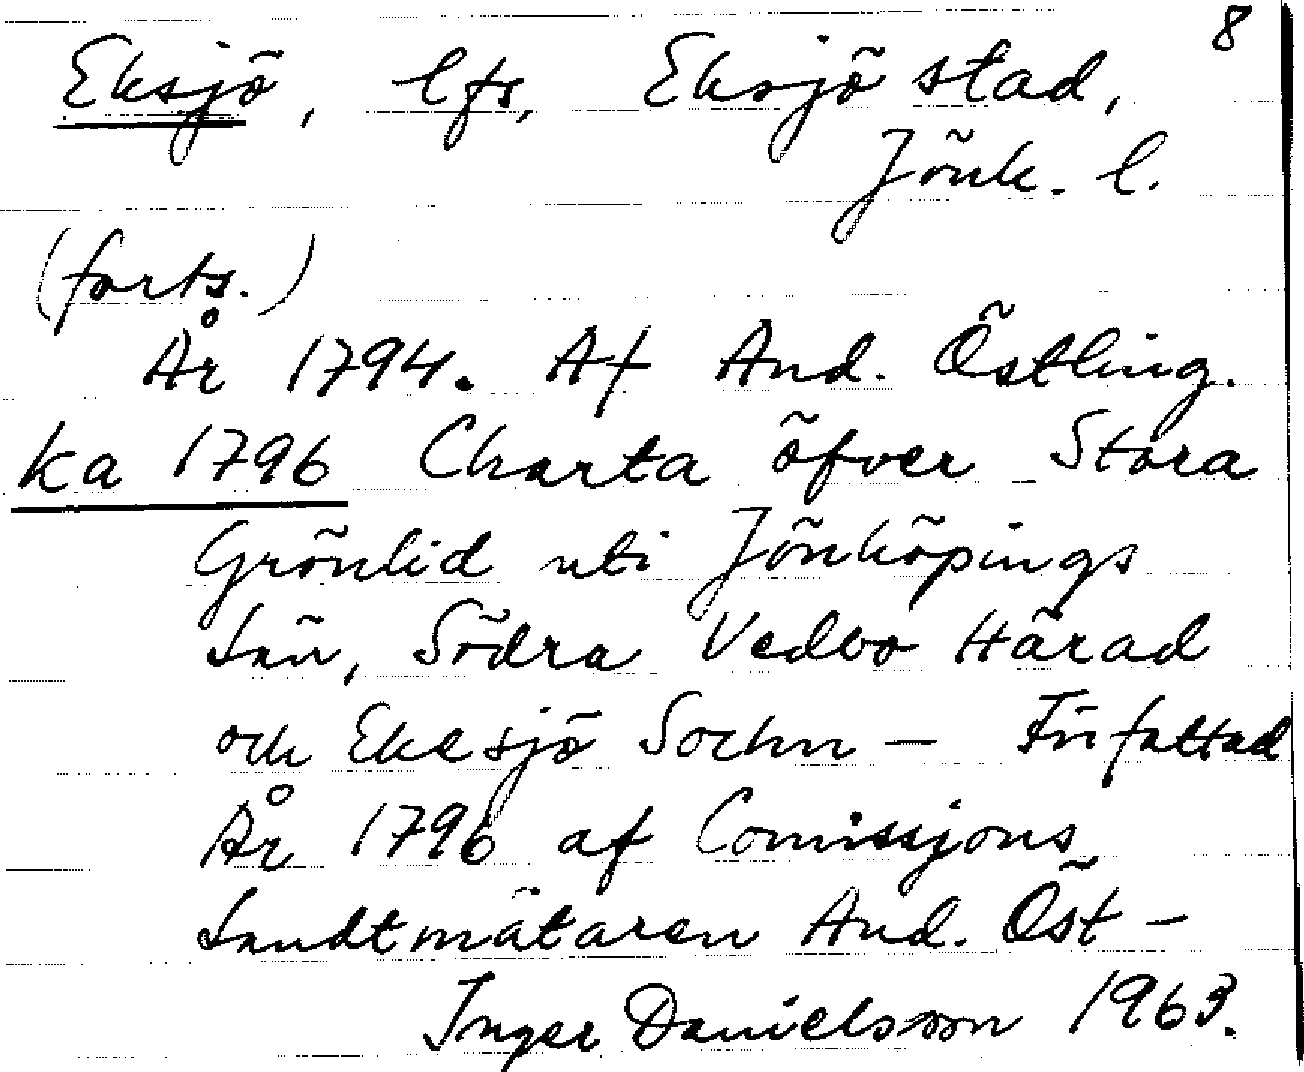 8
Eksjö, lfs, Eksjö stad,
Jönk. l.
(forts.)
År 1794. Af And. Östling.
ka 1796 Charta öfver Stora
Grönlid uti Jönköpings
Län, Södra Vedbo Härad
och Ekesjö Sochn – Författad
År 1796 af Comissjons
Landtmätaren And. Öst-
Inger Danielsson 1963.